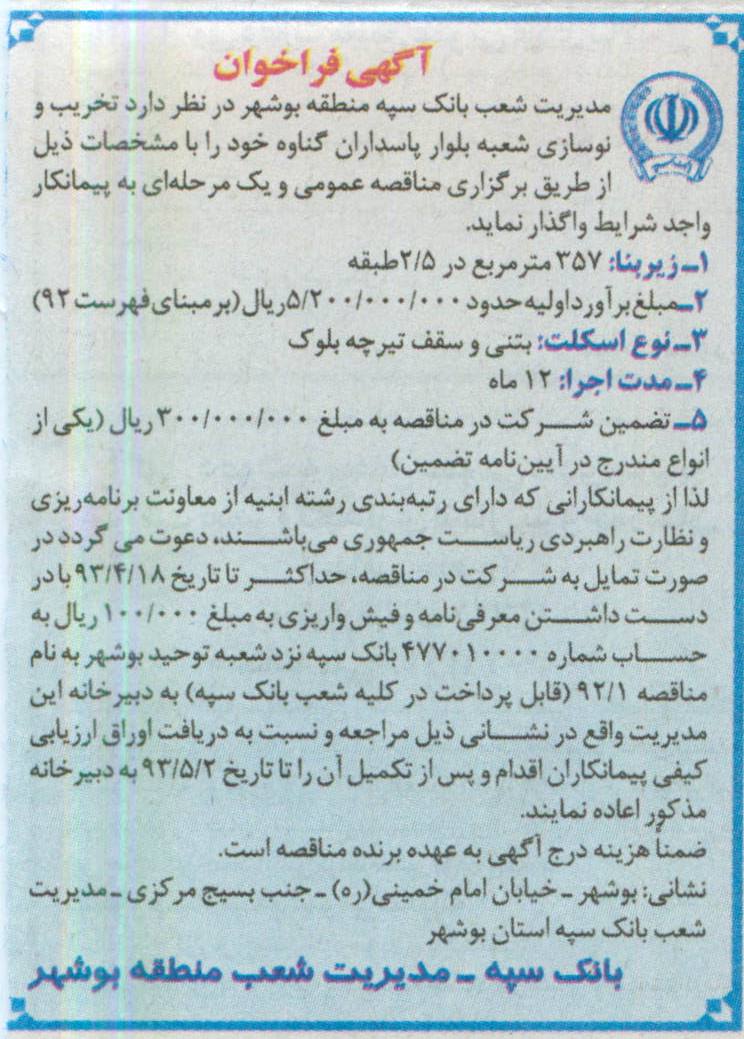 آگهی فراخوان
مدیریت شعب بانک سپه منطقه بوشهر در نظر دارد تخریب و
نوسازی شعبه بلوار پاسداران گناوه خود را با مشخصات ذیل
از طریق برگزاری مناقصه عمومی و یک مرحله‌ای به پیمانکار
واجد شرایط واگذار نماید.
۱ـ زیربنا: ۳۵۷ مترمربع در ۲/۵طبقه
۲ـ مبلغ برآورد اولیه حدود ۵/۲۰۰/۰۰۰/۰۰۰ریال (بر مبنای فهرست ۹۲)
۳ـ نوع اسکلت: بتنی و سقف تیرچه بلوک
۴ـ مدت اجرا: ۱۲ ماه
۵ـ تضمین شـــرکت در مناقصه به مبلغ ۳۰۰/۰۰۰/۰۰۰ ریال (یکی از
انواع مندرج در آیین‌نامه تضمین)
لذا از پیمانکارانی که دارای رتبه‌بندی رشته ابنیه از معاونت برنامه‌ریزی
و نظارت راهبردی ریاســـت جمهوری می‌باشـــند، دعوت می گردد در
صورت تمایل به شـــرکت در مناقصه، حداکثـــر تا تاریخ ۹۳/۴/۱۸ با در
دســـت داشـــتن معرفی‌نامه و فیش واریزی به مبلغ ۱۰۰/۰۰۰ ریال به
حســـاب شماره ۴۷۷۰۱۰۰۰۰ بانک سپه نزد شعبه توحید بوشهر به نام
مناقصه ۹۲/۱ (قابل پرداخت در کلیه شعب بانک سپه) به دبیرخانه این
مدیریت واقع در نشـــانی ذیل مراجعه و نسبت به دریافت اوراق ارزیابی
کیفی پیمانکاران اقدام و پس از تکمیل آن را تا تاریخ ۹۳/۵/۲ به دبیرخانه
مذکور اعاده نمایند.
ضمناً هزینه درج آگهی به عهده برنده مناقصه است.
نشانی: بوشهر ـ خیابان امام خمینی(ره) ـ جنب بسیج مرکزی ـ مدیریت
شعب بانک سپه استان بوشهر
بانک سپه ـ مدیریت شعب منطقه بوشهر